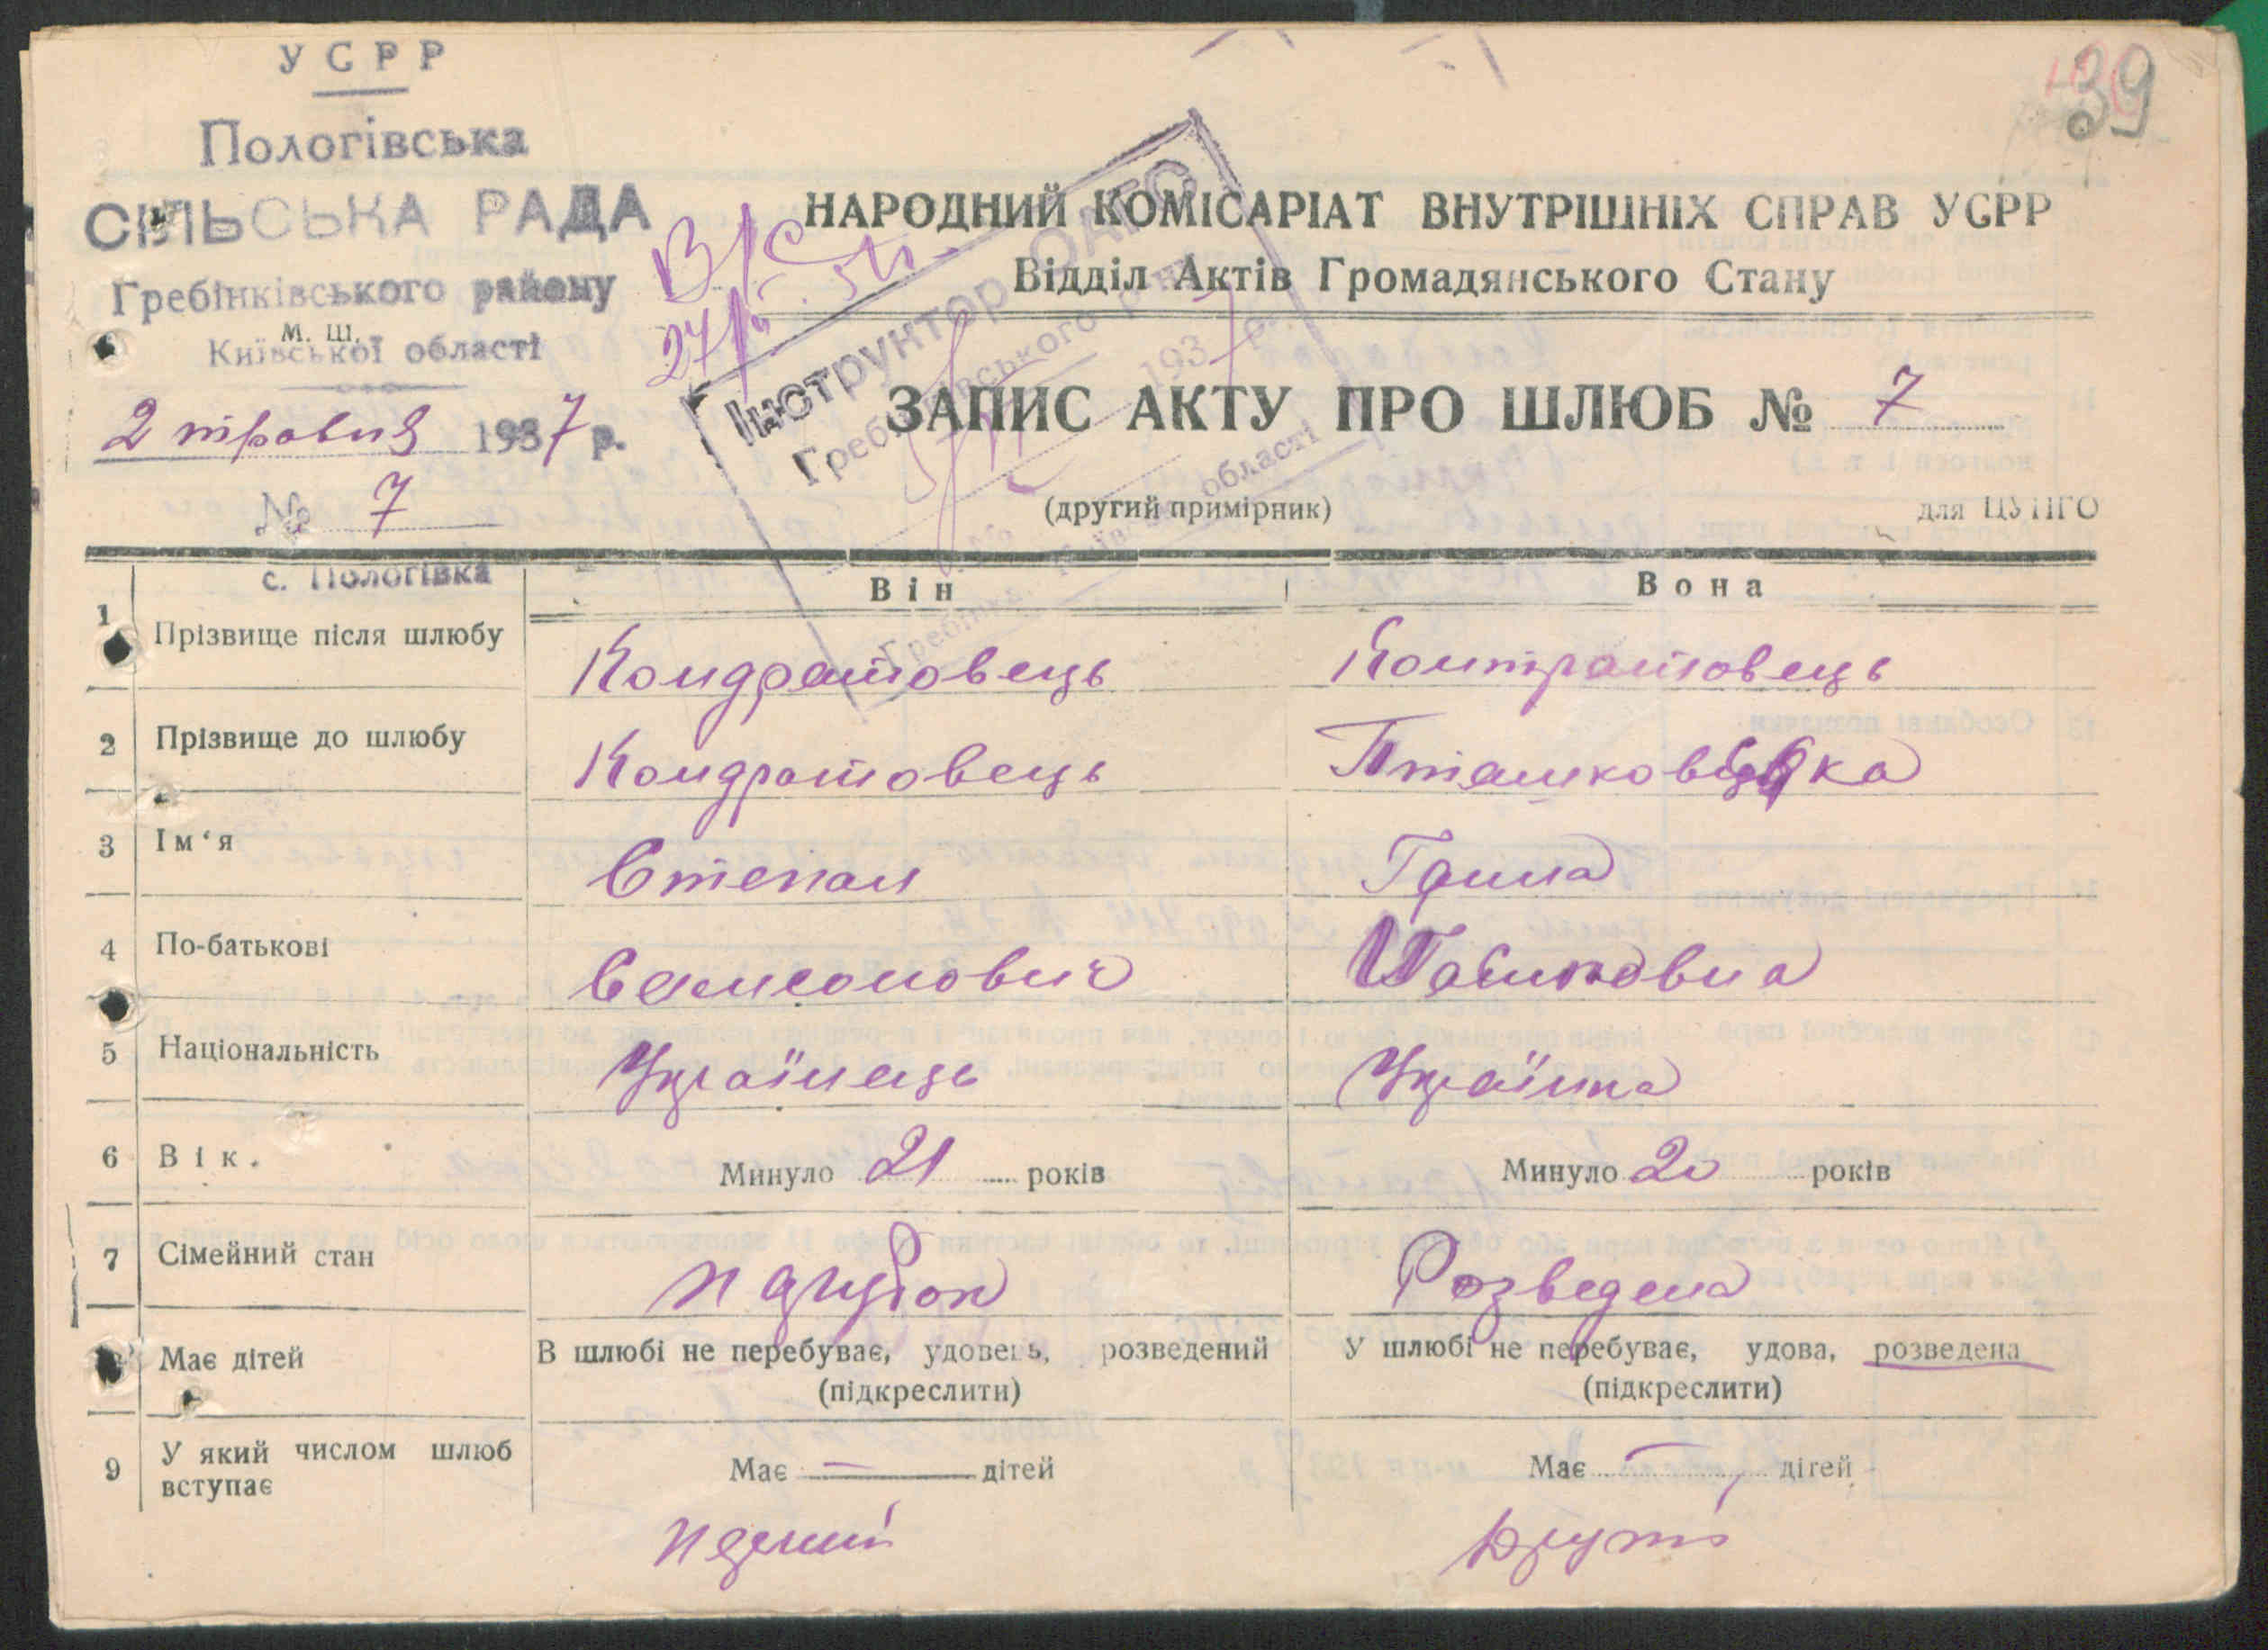 УСРР
39
Пологівська
СІЛЬСЬКА РАДА
Гребінківського району
М. Ш.
Київської області
НАРОДНИЙ КОМІСАРІАТ ВНУТРІШНІХ СПРАВ УСРР
Відділ Актів Громадянського Стану
Інструктор ОАГС
Гребінківського р-ну
Київської області
193 7 р.
2 травня 1937 р.
№ 7
ЗАПИС АКТУ ПРО ШЛЮБ № 7
(другий примірник)
для ЦУНГО
с. Пологівка
Він Вона
1 Прізвище після шлюбу Кондратовець Контратовець
2 Прізвище до шлюбу Кондратовець
3 Ім‘я Степан Гриna
4 По-батькові Самсонович
5 Національність Українець Українка
6 Вік. Минуло 21 років Минуло 20 років
7 Сімейний стан парубок Розведена
Має дітей В шлюбі не перебуває, удовець, розведений У шлюбі не перебуває, удова, розведена
(підкреслити) (підкреслити)
9 У який числом шлюб вступає Має — дітей Має — дітей
перший другий